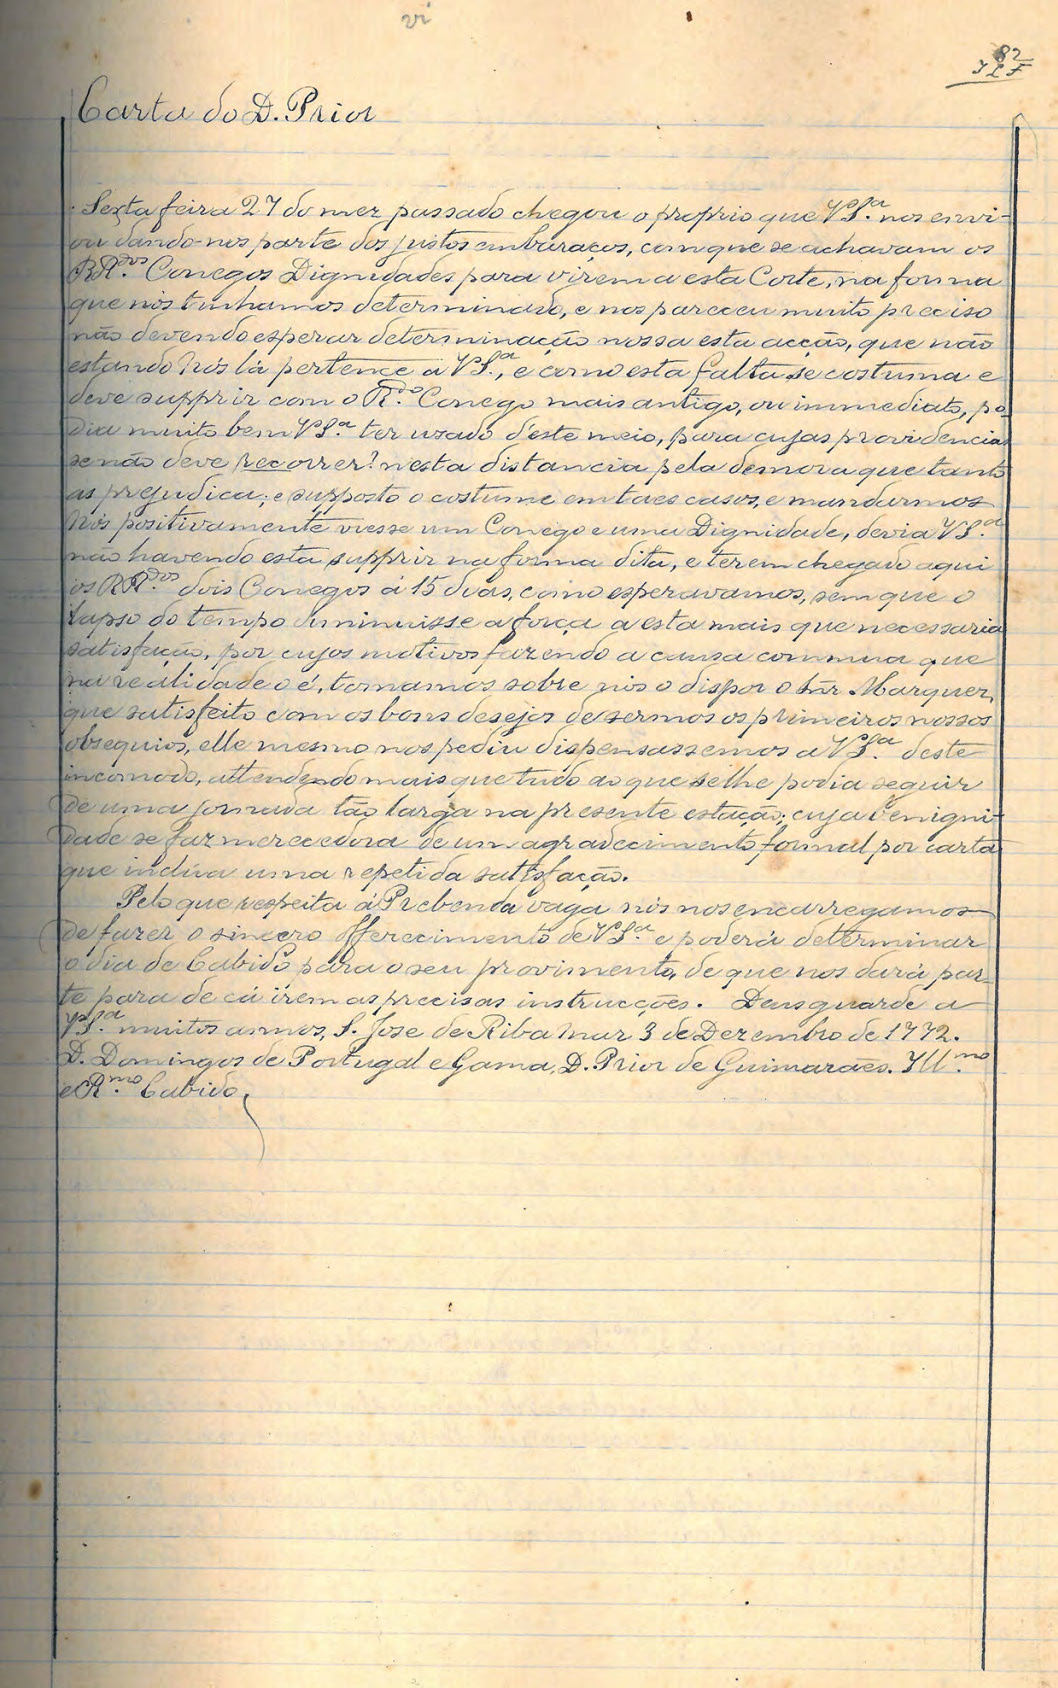 vi
82
Carta do D. Prior
Sexta feira 27 do mez passado chegou o proprio que VS.ª nos envi-
ou dando-nos parte dos justos embaraços, com que se achavam os
RR.dos Conegos Dignidades para virem a esta Corte, na forma
que nós tinhamos determinado, e nos pareceu muito preciso
não devendo esperar determinação nossa esta acção, que não
estando Nós lá pertence a VS.ª, e como esta falta se costuma e
deve supprir com o R.do Conego mais antigo, ou immediato, po-
dia muito bem VS.ª ter usado d'este meio, para cujas providencias
se não deve recorrer? nesta distancia pela demora que tanto
as prejudica; e supposto o costume em taes casos, e mandarmos
Nós positivamente viesse um Conego e uma Dignidade, devia VS.ª
não havendo esta supprir na forma dita, e terem chegado aqui
os RR.dos dois Conegos á 15 dias, como esperavamos, sem que o
lapso do tempo diminuisse a força a esta mais que necessaria
satisfação, por cujos motivos fazendo a causa commua que
na realidade o é, tomamos sobre nós o dispor o Snr. Marquez,
que satisfeito com os bons desejos de sermos os primeiros nossos
obsequios, elle mesmo nos pediu dispensassemos a VS.ª deste
incomodo, attendendo mais que tudo ao que se lhe podia seguir
de uma jornada tão larga na presente estação; cuja benigni-
dade se faz merecedora de um agradecimento formal por carta
que inclua uma repetida satisfação.
Pelo que respeita á Prebenda vaga nós nos encarregamos
de fazer o sincero offerecimento de VS.ª e poderá determinar
o dia de Cabido para o seu provimento, de que nos dará par-
te para de cá irem as precisas instrucções. Deus guarde a
VS.ª muitos annos, S. Jose de Riba Mar 3 de Dezembro de 1772.
D. Domingos de Portugal e Gama, D. Prior de Guimarães. Ill.mo
e R.mo Cabido.